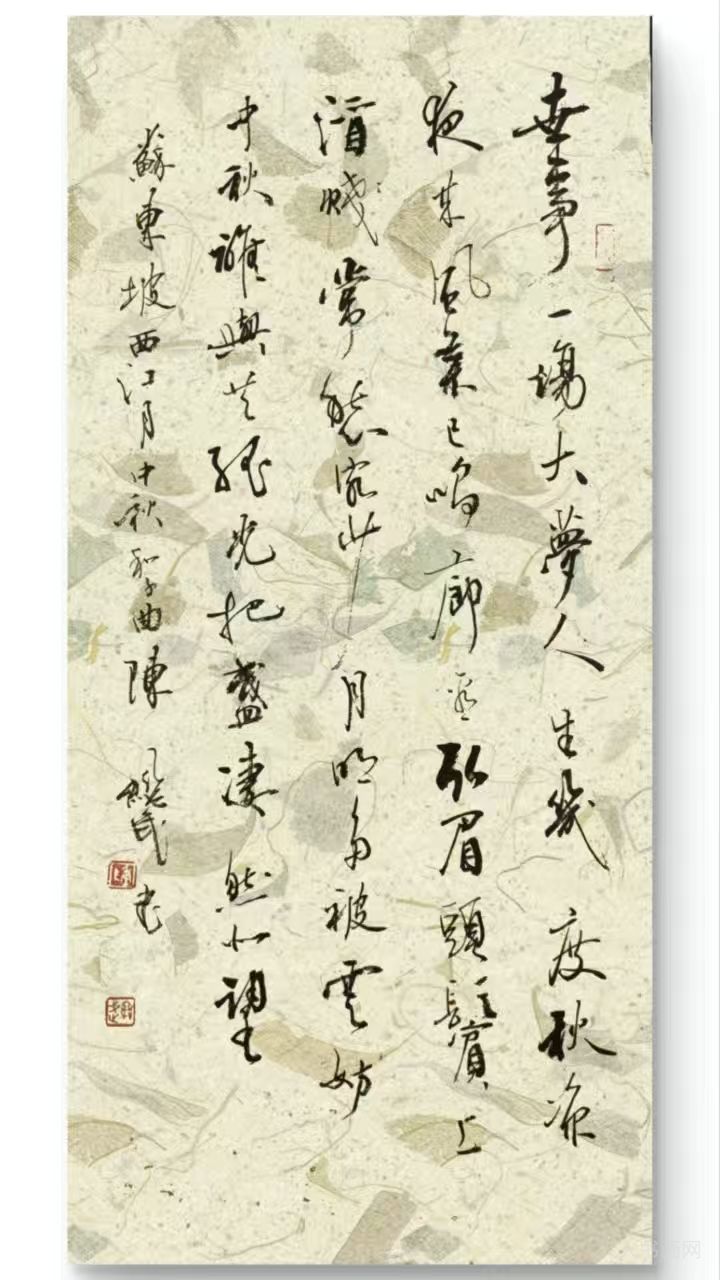 世事一場大夢人生幾度秋凉
夜来風葉已鳴廊看取眉頭鬢上
酒賤常愁客少月明多被雲妨
中秋誰與共孤光把盞凄然北望
蘇東坡西江月中秋和子由陳民書